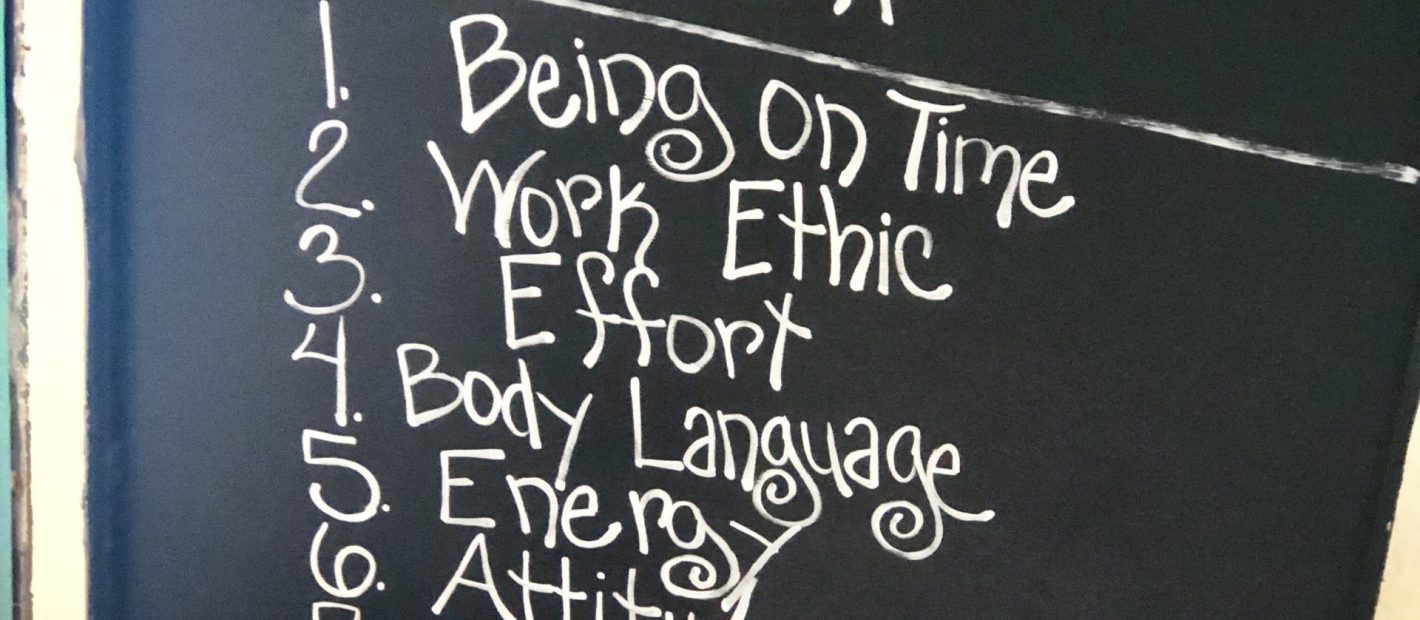 1. Being On Time
2. Work Ethic
3. Effort
4. Body Language
5. Energy
6.